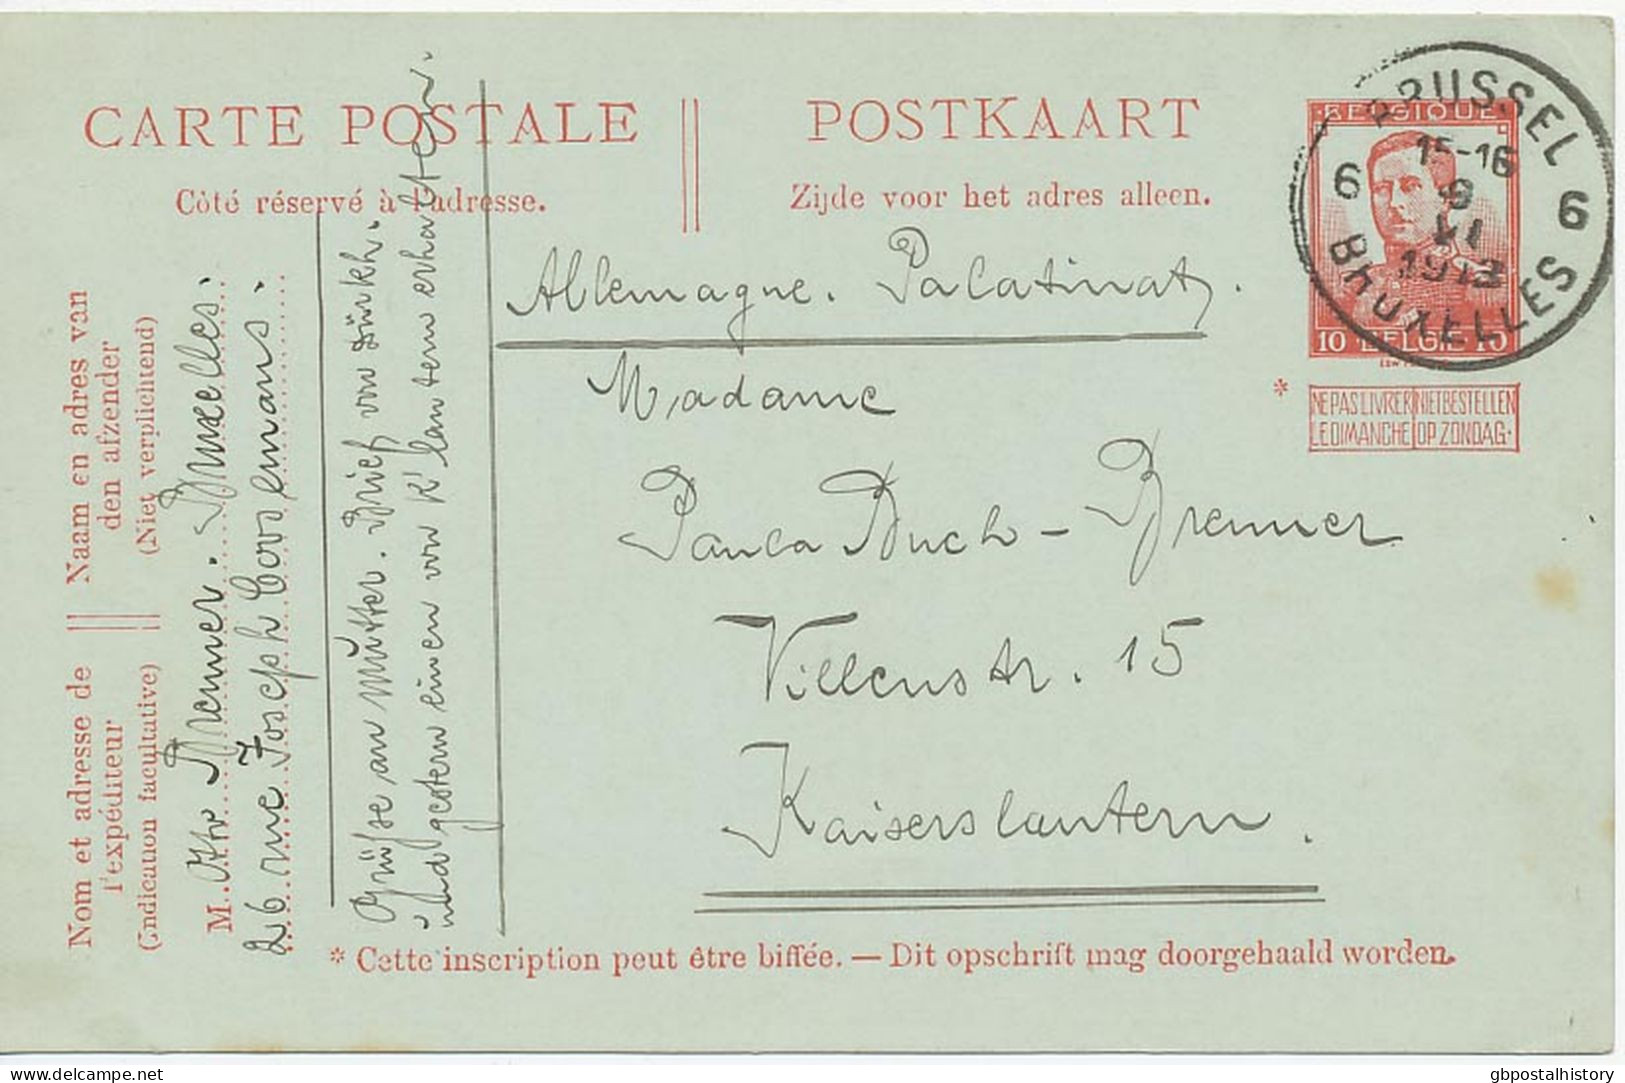 CARTE POSTALE
POSTKAART
Côté réservé à l'adresse.
Zijde voor het adres alleen.
BELGIQUE
10 BELGIE 10
BRUSSEL
15-16
6 6
VI
BRUXELLES
NE PAS LIVRER NIET BESTELLEN
LE DIMANCHE OP ZONDAG.
*
Allemagne. Palatinat.
Madame
Paula Buch-Bremer
Villenstr. 15
Kaiserslautern.
Naam en adres van
den afzender
(Niet verplichtend)
Nom et adresse de
l'expéditeur
(Indication facultative)
M. Otto Bremer. Bruxelles.
26 rue Joseph Coosemans.
Grüsse an Mutter. Brief von Dürkh.
und gestern einen von K'lautern erhalten.
* Cette inscription peut être biffée. — Dit opschrift mag doorgehaald worden.
gbpostalhistory